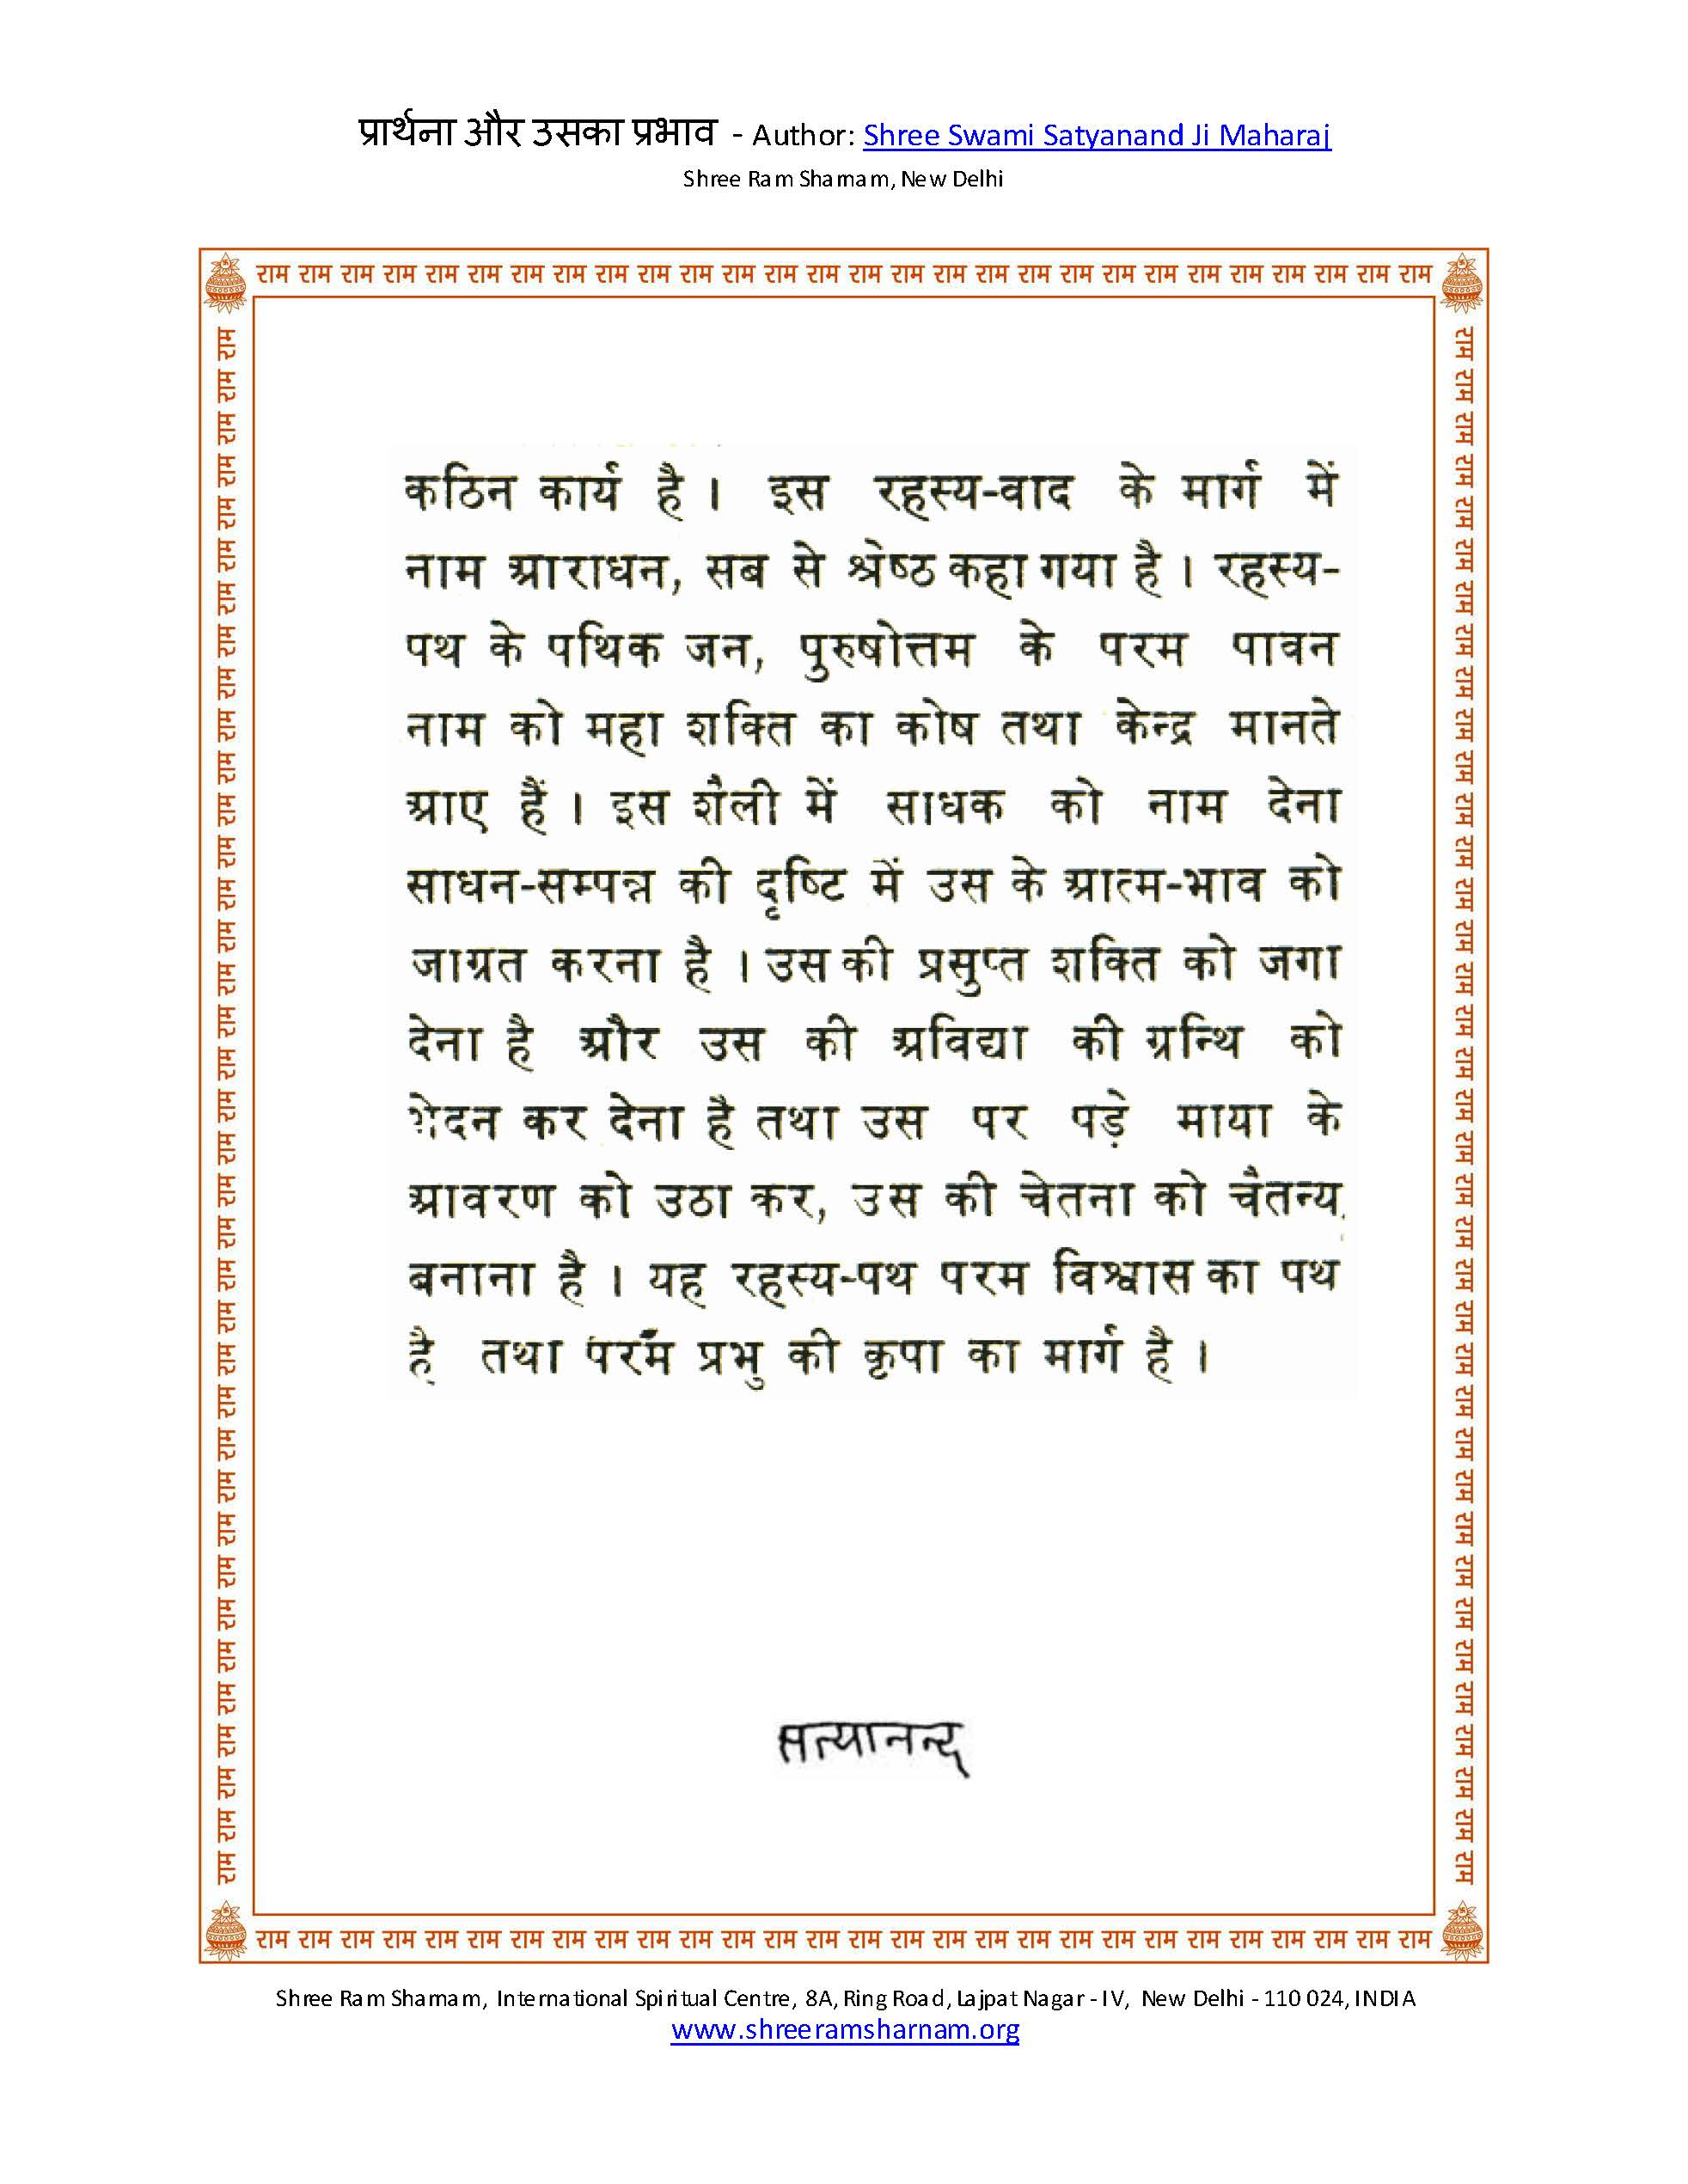 प्रार्थना और उसका प्रभाव - Author: Shree Swami Satyanand Ji Maharaj
Shree Ram Sharnam, New Delhi
राम राम राम राम राम राम राम राम राम राम राम राम राम राम राम राम राम राम राम राम राम राम राम राम राम राम राम राम
कठिन कार्य है । इस रहस्य-वाद के मार्ग में
नाम आराधन, सब से श्रेष्ठ कहा गया है । रहस्य-
पथ के पथिक जन, पुरुषोत्तम के परम पावन
नाम को महा शक्ति का कोष तथा केन्द्र मानते
आए हैं । इस शैली में साधक को नाम देना
साधन-सम्पन्न की दृष्टि में उस के आत्म-भाव को
जाग्रत करना है । उस की प्रसुप्त शक्ति को जगा
देना है और उस की अविद्या की ग्रन्थि को
भेदन कर देना है तथा उस पर पड़े माया के
आवरण को उठा कर, उस की चेतना को चैतन्य
बनाना है । यह रहस्य-पथ परम विश्वास का पथ
है तथा परम प्रभु की कृपा का मार्ग है ।
सत्यानन्द
राम राम राम राम राम राम राम राम राम राम राम राम राम राम राम राम राम राम राम राम राम राम राम राम राम राम राम राम
Shree Ram Sharnam, International Spiritual Centre, 8A, Ring Road, Lajpat Nagar - IV, New Delhi - 110 024, INDIA
www.shreeramsharnam.org